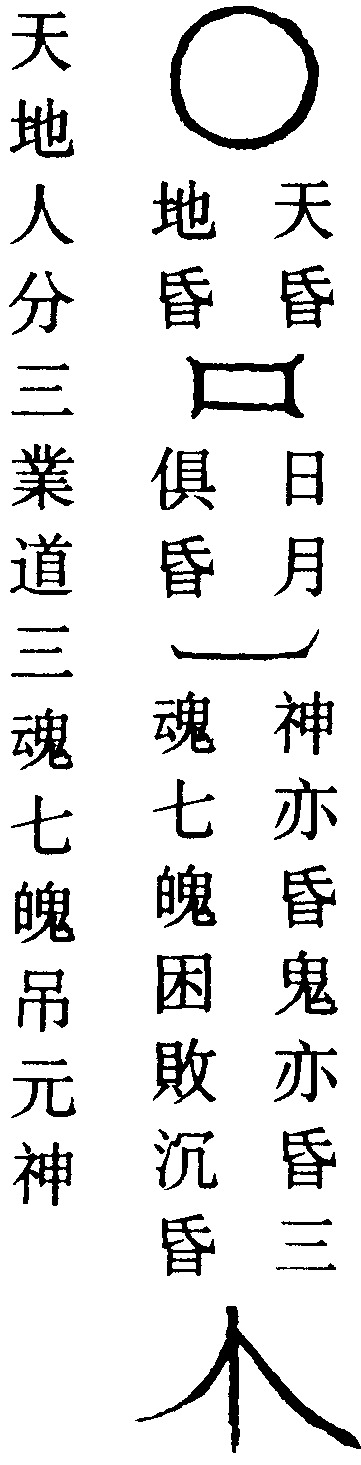 天昏
地昏
日月
俱昏
神亦昏鬼亦昏三
魂七魄困敗沉昏
天地人分三業道三魂七魄吊元神